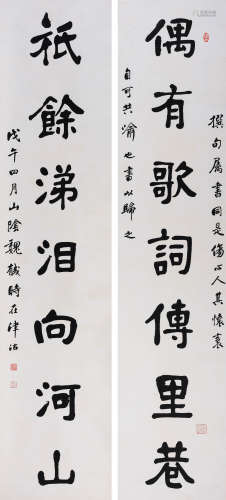 偶有歌詞傳里巷
祇餘涕泪向河山
撰句属書同是傷心人其懷衷
自可共喻也書以歸之
戊午四月山陰魏戫時在津沽